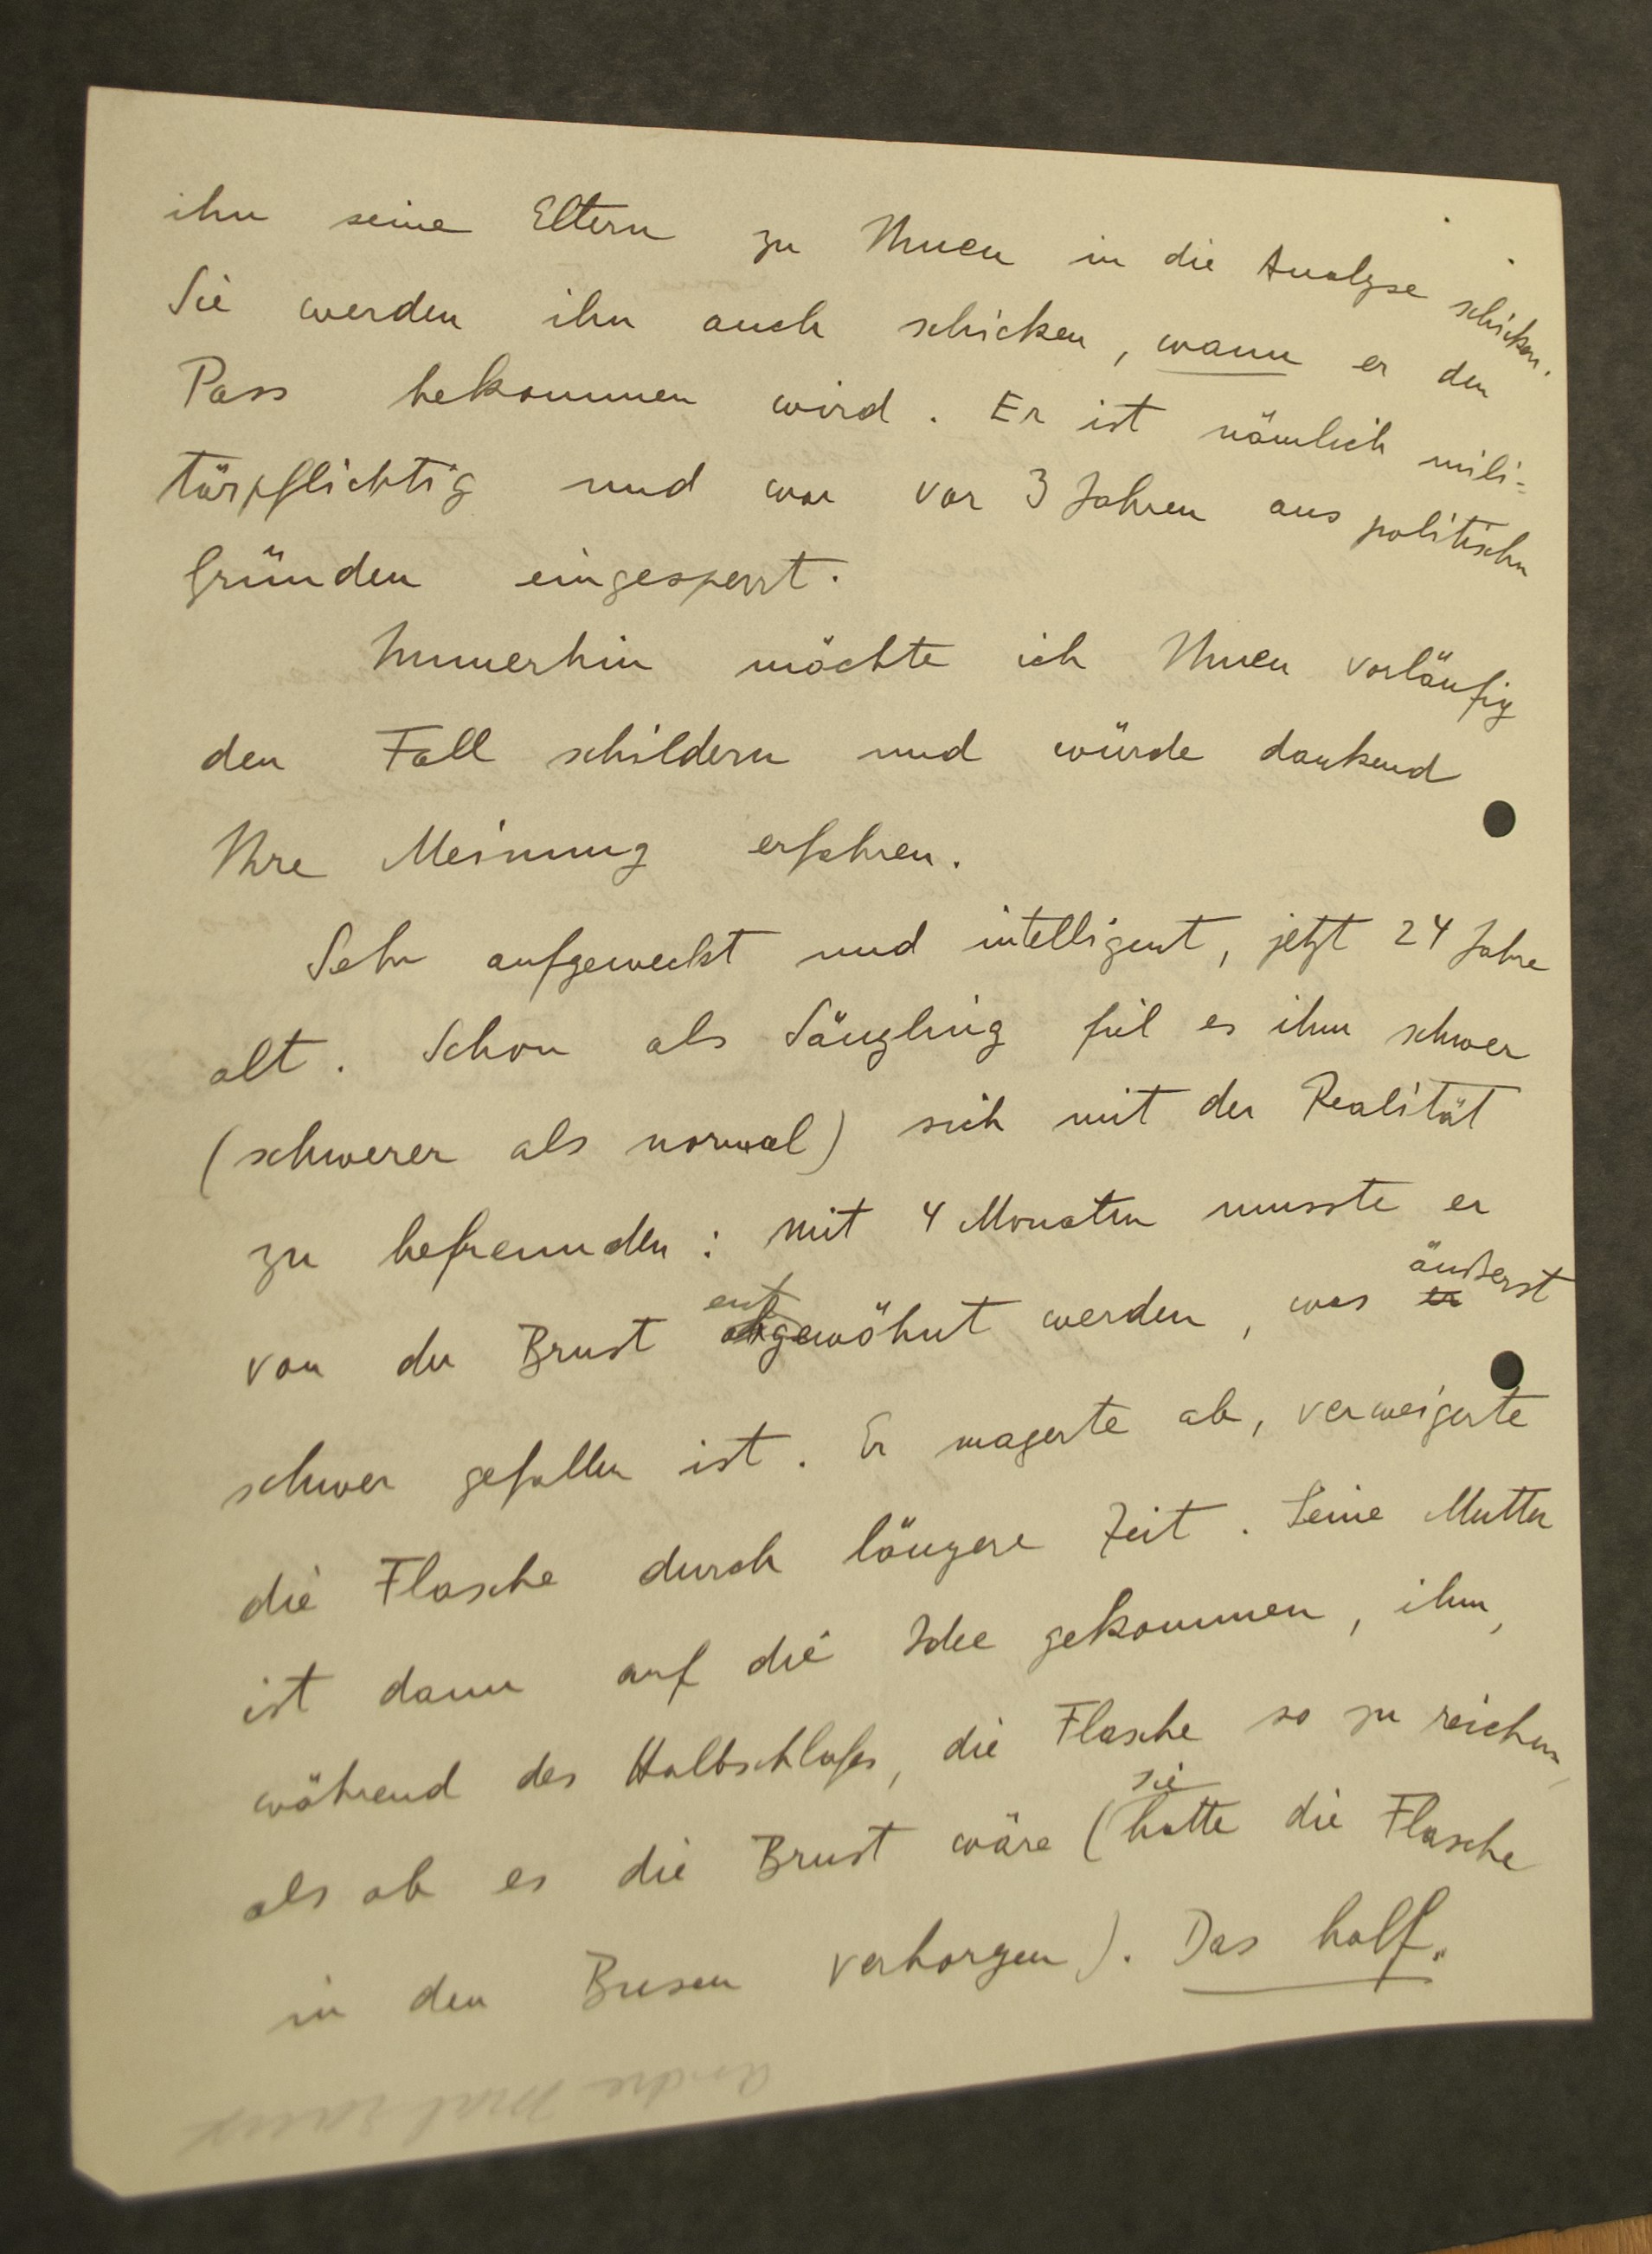 ihn seine Eltern zu Ihnen in die Analyse schicken.
Sie werden ihn auch schicken, wann er den
Pass bekommen wird. Er ist nämlich mili-
tärpflichtig und war vor 3 Jahren aus politischen
Gründen eingesperrt.
Immerhin möchte ich Ihnen vorläufig
den Fall schildern und würde dankend
Ihre Meinung erfahren.
Sehr aufgeweckt und intelligent, jetzt 24 Jahre
alt. Schon als Säugling fiel es ihm schwer
(schwerer als normal) sich mit der Realität
zu befreunden: mit 4 Monaten musste er
von der Brust entgewöhnt werden, was äußerst
schwer gefallen ist. Er magerte ab, verweigerte
die Flasche durch längere Zeit. Seine Mutter
ist dann auf die Idee gekommen, ihm,
während des Halbschlafes, die Flasche so zu reichen,
als ob es die Brust wäre (sie hatte die Flasche
in den Busen verborgen). Das half.